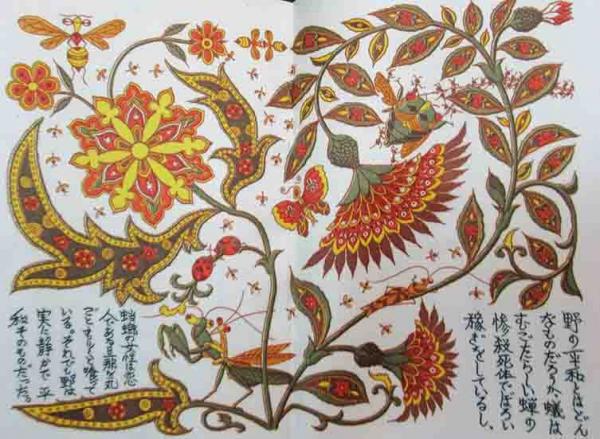 野の平和とはどん
なものだろうか、蟻は
むごたらしい蝉の
惨殺死体でぼろい
稼ぎをしているし、
蟷螂の女性は恋
人である旦那を丸
ごともりもりと喰って
いる。それでも野は
実に静かで平
和そのものだった。